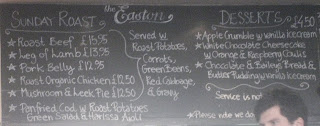 the Easton
SUNDAY ROAST
★ Roast Beef £16.95
★ Leg of Lamb £13.95
★ Pork Belly £12.95
★ Roast Organic Chicken £12.50
★ Mushroom & Leek Pie £12.50
★ Panfried Cod w Roast Potatoes
Green Salad & Harissa Aioli
Served w
Roast Potatoes,
Carrots,
Green Beans,
Red Cabbage,
& Gravy
DESSERTS £4.50
★ Apple Crumble w vanilla icecream
★ White Chocolate Cheesecake
w Orange & Raspberry Coulis
★ Chocolate & Bailey Bread &
Butter Pudding w vanilla icecream
Service is not
★ Please order